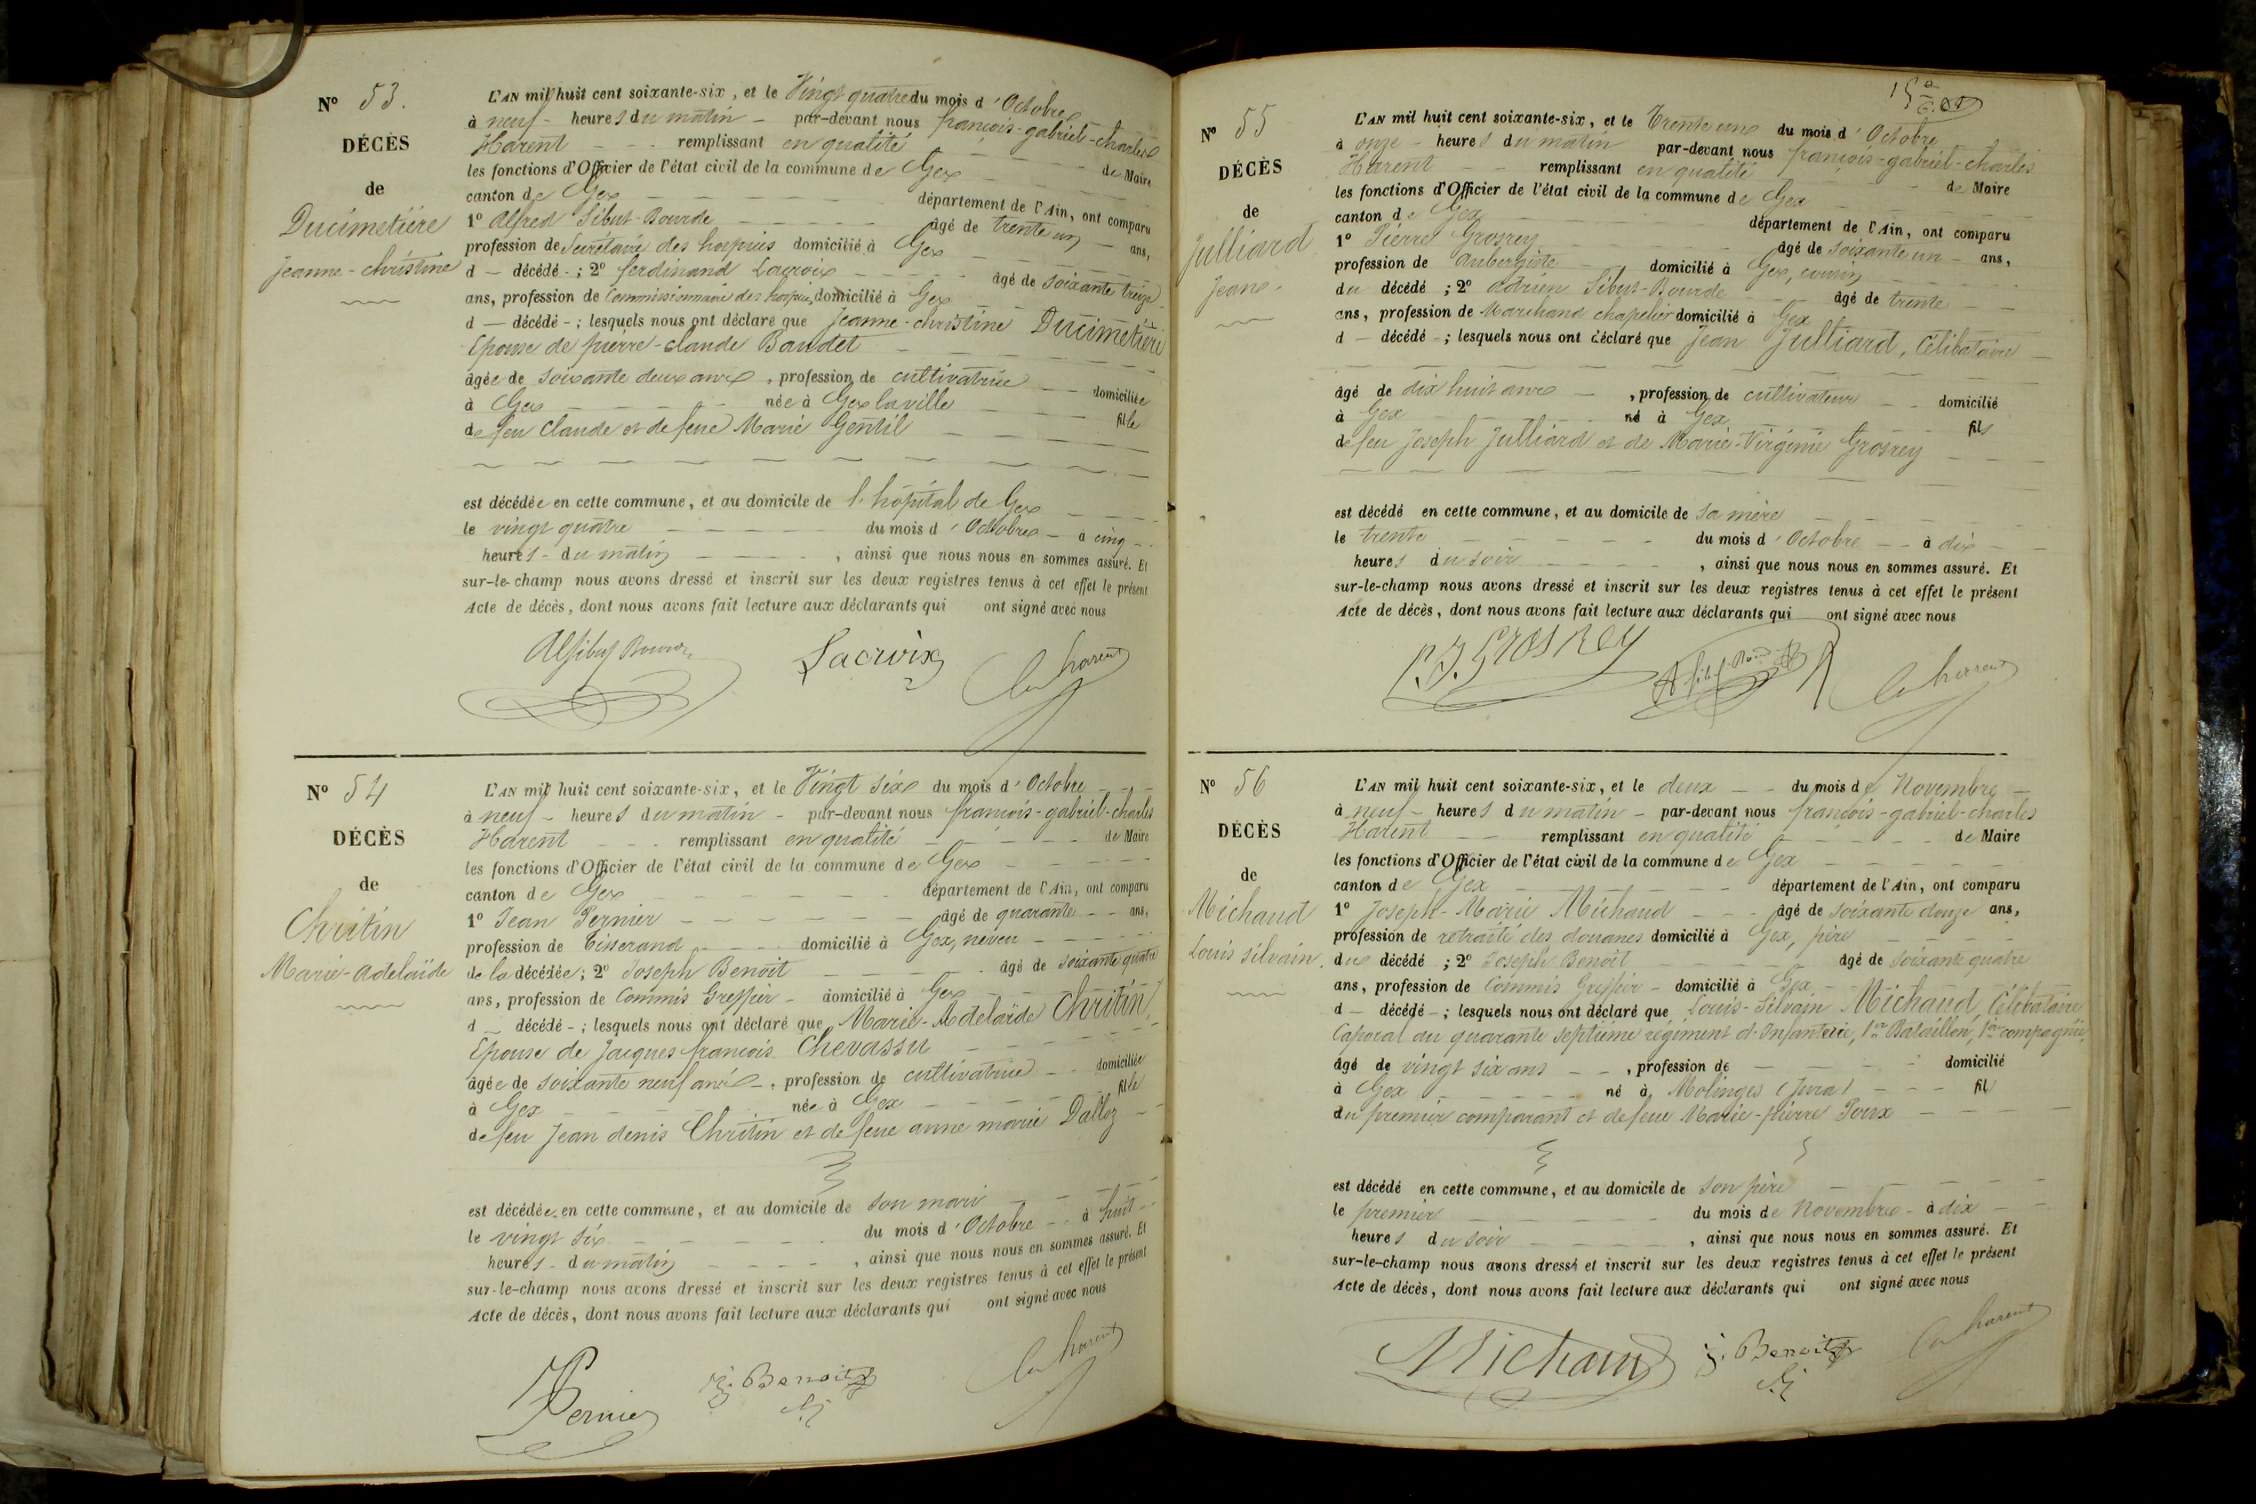 Nº 53.
DÉCÈS
de
Ducimetière
Jeanne-christine
L'AN mil huit cent soixante-six, et le Vingt quatre du mois d'Octobre
à neuf - heures du matin - par-devant nous françois-gabriel-charles
Harent - - - remplissant en qualité de Maire
les fonctions d'Officier de l'état civil de la commune de Gex
canton de Gex département de l'Ain, ont comparu
1º Alfred Sibut-Bourde âgé de trente un ans,
profession de Secrétaire des hospices domicilié à Gex
d — décédé - ; 2º ferdinand Lacroix âgé de soixante treize
ans, profession de Commissionnaire des hospices domicilié à Gex
d — décédé - ; lesquels nous ont déclaré que Jeanne-christine Ducimetière
Epouse de pierre-claude Baudet
âgée de soixante deux ans, profession de cultivatrice domiciliée
à Gex née à Gex la ville fille
de feu Claude et de feue Marie Gentil
est décédée en cette commune, et au domicile de l'hôpital de Gex
le vingt quatre du mois d'Octobre - à cinq
heures - du matin, ainsi que nous nous en sommes assuré. Et
sur-le-champ nous avons dressé et inscrit sur les deux registres tenus à cet effet le présent
Acte de décès, dont nous avons fait lecture aux déclarants qui ont signé avec nous
Alf Sibut Bourde Lacroix Harent
Nº 54
DÉCÈS
de
Chritin
Marie-Adelaïde
L'AN mil huit cent soixante-six, et le Vingt six du mois d'Octobre
à neuf - heures du matin - par-devant nous françois-gabriel-charles
Harent - - - remplissant en qualité de Maire
les fonctions d'Officier de l'état civil de la commune de Gex
canton de Gex département de l'Ain, ont comparu
1º Jean Pernier âgé de quarante ans,
profession de Tisserand domicilié à Gex, neveu
de la décédée; 2º Joseph Benoit âgé de soixante quatre
ans, profession de Commis Greffier - domicilié à Gex
d — décédé - ; lesquels nous ont déclaré que Marie-Adelaïde Chritin,
Epouse de Jacques françois Chevassu
âgée de soixante neuf ans, profession de cultivatrice domiciliée
à Gex née à Gex fille
de feu Jean denis Chritin et de feue anne marie Dalloz
est décédée en cette commune, et au domicile de son mari
le vingt six du mois d'Octobre - à huit
heures - du matin, ainsi que nous nous en sommes assuré. Et
sur-le-champ nous avons dressé et inscrit sur les deux registres tenus à cet effet le présent
Acte de décès, dont nous avons fait lecture aux déclarants qui ont signé avec nous
Pernier J. Benoit Harent
Nº 55
DÉCÈS
de
Julliard
Jean.
L'AN mil huit cent soixante-six, et le Trente un du mois d'Octobre
à onze - heures du matin par-devant nous françois-gabriel-charles
Harent - - remplissant en qualité de Maire
les fonctions d'Officier de l'état civil de la commune de Gex
canton de Gex département de l'Ain, ont comparu
1º Pierre Grosrey âgé de soixante un - ans,
profession de aubergiste domicilié à Gex, cousin
du décédé ; 2º Adrien Sibut-Bourde âgé de trente
ans, profession de Marchand chapelier domicilié à Gex
d — décédé - ; lesquels nous ont déclaré que Jean Julliard, Célibataire
âgé de dix huit ans, profession de cultivateur domicilié
à Gex né à Gex fils
de feu Joseph Julliard et de Marie-Virginie Grosrey
est décédé en cette commune, et au domicile de sa mère
le trente du mois d'Octobre - - à dix
heures du soir, ainsi que nous nous en sommes assuré. Et
sur-le-champ nous avons dressé et inscrit sur les deux registres tenus à cet effet le présent
Acte de décès, dont nous avons fait lecture aux déclarants qui ont signé avec nous
P. J. Grosrey Harent
Nº 56
DÉCÈS
de
Michaud
Louis Silvain.
L'AN mil huit cent soixante-six, et le deux - - du mois de Novembre
à neuf - heures du matin - par-devant nous françois-gabriel-charles
Harent - - remplissant en qualité de Maire
les fonctions d'Officier de l'état civil de la commune de Gex
canton de Gex département de l'Ain, ont comparu
1º Joseph-Marie Michaud âgé de soixante douze ans,
profession de retraité des douanes domicilié à Gex, père
du décédé ; 2º Joseph Benoit âgé de soixante quatre
ans, profession de Commis Greffier - domicilié à Gex
d — décédé - ; lesquels nous ont déclaré que Louis-Silvain Michaud, Célibataire
Caporal au quarante septième régiment d'Infanterie, 1er Bataillon, 1ere compagnie,
âgé de vingt six ans - - , profession de domicilié
à Gex né à Molinges (Jura) fils
du premier comparant et de feue Marie-pierre Poux
est décédé en cette commune, et au domicile de son père
le premier du mois de Novembre - à dix
heures du soir, ainsi que nous nous en sommes assuré. Et
sur-le-champ nous avons dressé et inscrit sur les deux registres tenus à cet effet le présent
Acte de décès, dont nous avons fait lecture aux déclarants qui ont signé avec nous
Michaud J. Benoit Harent